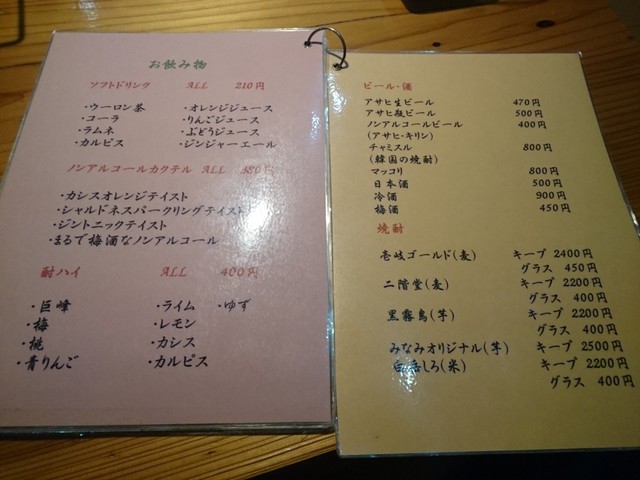 お飲み物
ソフトドリンク ALL 210円
・ウーロン茶 ・オレンジジュース
・コーラ ・りんごジュース
・ラムネ ・ぶどうジュース
・カルピス ・ジンジャーエール
ノンアルコールカクテル ALL 380円
・カシスオレンジテイスト
・シャルドネスパークリングテイスト
・ジントニックテイスト
・まるで梅酒なノンアルコール
酎ハイ ALL 400円
・巨峰 ・ライム ・ゆず
・梅 ・レモン
・桃 ・カシス
・青りんご ・カルピス
ビール・酒
アサヒ生ビール 470円
アサヒ瓶ビール 500円
ノンアルコールビール 400円
(アサヒ・キリン)
チャミスル 800円
(韓国の焼酎)
マッコリ 800円
日本酒 500円
冷酒 900円
梅酒 450円
焼酎
壱岐ゴールド(麦) キープ 2400円
グラス 450円
二階堂(麦) キープ 2200円
グラス 400円
黒霧島(芋) キープ 2200円
グラス 400円
みなみオリジナル(芋) キープ 2500円
白岳しろ(米) キープ 2200円
グラス 400円